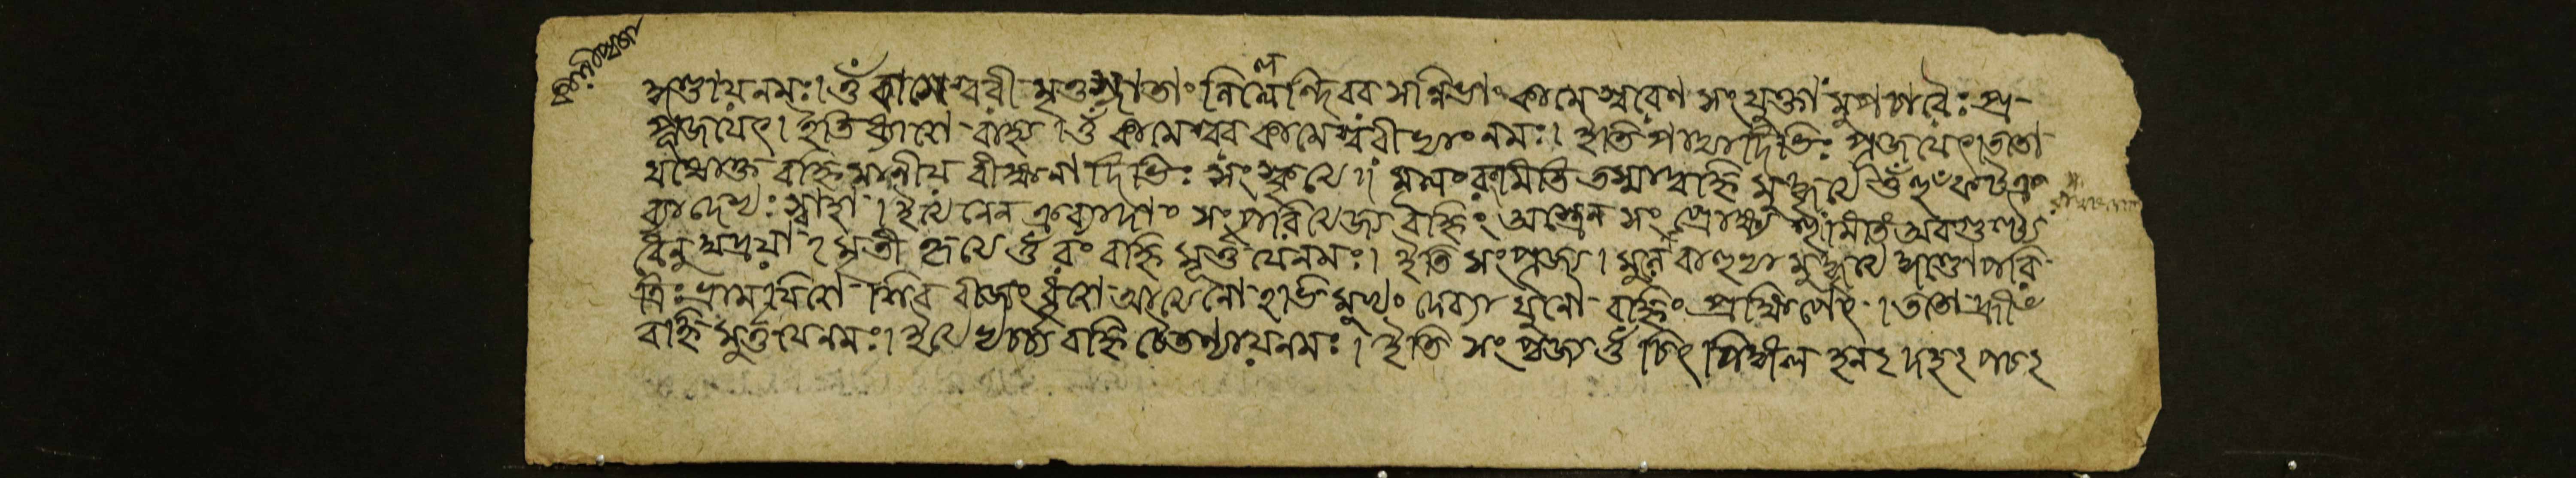 মণ্ডায় নমঃ। ওঁ কামেশ্বরী মৃতুস্নাতাং নিলেন্দিবর সন্নিভাং কামেশ্বরেণ সংযুক্তা মুপচারৈঃ প্র-
পূজয়েৎ। ইতি ধ্যাত্বা বাহ্য। ওঁ কামেশ্বর কামেশ্বরীভ্যাং নমঃ। ইতি পাদ্যাদিভিঃ পূজয়েৎ। ততো
যথোক্ত বহ্নি মানীয় বীক্ষণাদিভিঃ সংস্কৃত্য। মূলং রমিতি তস্মাদ্বহ্নি মুদ্ধৃত্য ওঁ হুঁ ফট্ ক্র-
ব্যাদেভ্যঃ স্বাহা। ইত্যনেন ক্রব্যাদাংশং পরিত্যজ্য বহ্নিং অস্ত্রেণ সংপ্রোক্ষ্য হুমিতি অবগুণ্ঠ্য
ধেনুমুদ্রয়া মৃতীকৃত্য ওঁ রং বহ্নি মূর্ত্তয়ে নমঃ। ইতি সংপূজ্য। মূলং বাহুভ্যা মুদ্ধৃত্য মণ্ডোপরি
ত্রিঃ ভ্রাময়িত্বা শিব বীজং ধৃত্বা আত্মনো ঽভিমুখং দেব্যা যোনৌ বহ্নিং প্রক্ষিপেৎ। ততো হ্রীঁ
বহ্নি মূর্ত্তয়ে নমঃ। ইত্যভ্যর্চ্চ্য বহ্নি চৈতন্যায় নমঃ। ইতি সংপূজ্য ওঁ চিৎ পিঙ্গল হন ২ দহ ২ পচ ২